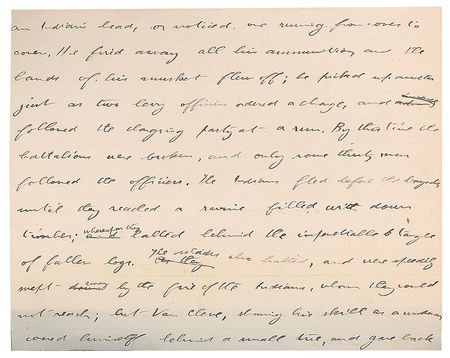 an Indian's head, or noticed one running from cover to
cover. He fired away all his ammunition and the
bands of his musket flew off; he picked up another
just as two levy officers ordered a charge, and
followed the charging party at a run. By this time the
battalions were broken, and only some thirty men
followed the officers. The Indians fled before the bayonets
until they reached a ravine filled with down
timber; whereupon they halted behind the impenetrable tangle
of fallen logs. The soldiers also halted, and were speedily
swept away by the fire of the Indians, whom they could
not reach; but Van Cleve, showing his skill as a woodsman
covered himself behind a small tree, and gave back